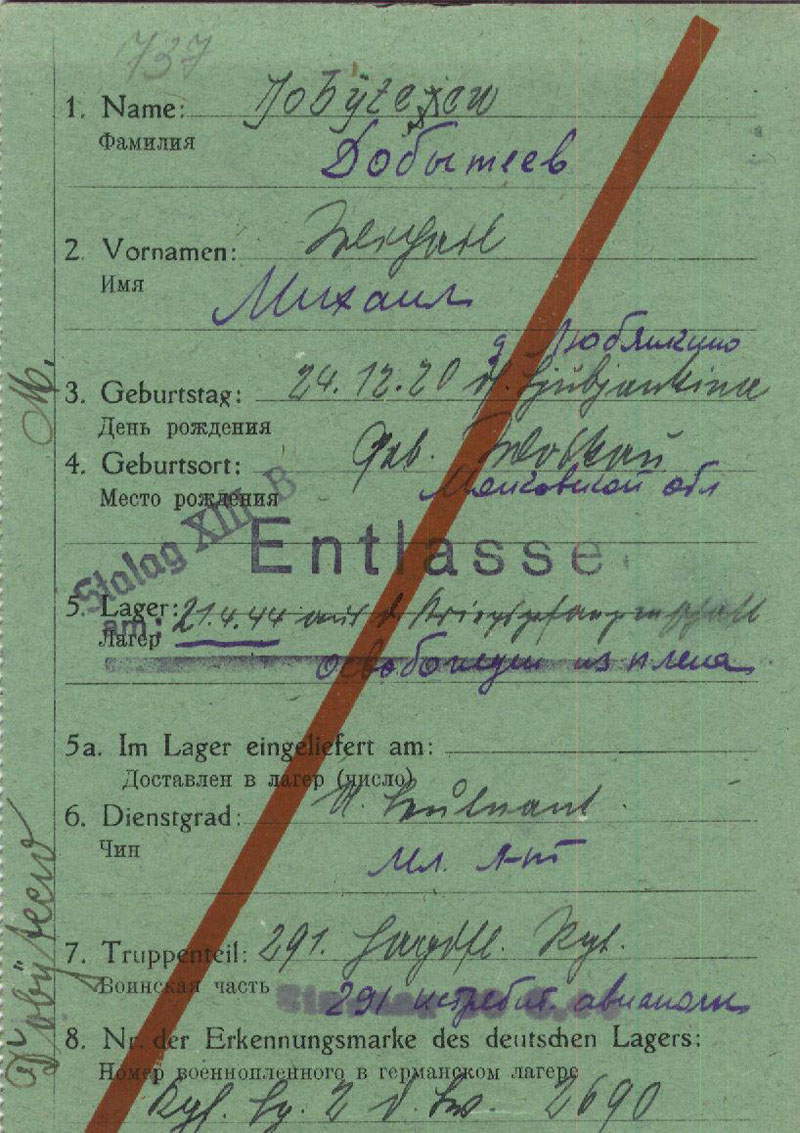 737
1. Name: Dobÿtejew
Фамилия
Добытеев
2. Vornamen: Michail
Имя
Михаил
д. Любянкино
3. Geburtstag: 24.12.20 d. Ljubjankino
День рождения
4. Geburtsort: Geb. Moskau
Место рождения
Московской обл
Stalag XIII B
Entlasse
5. Lager: 21.4.44 aus d. Kriegsgefangenschaft
am:
Лагер
освобожден из плена
5a. Im Lager eingeliefert am:
Доставлен в лагер (число)
6. Dienstgrad: U. Leutnant.
Чин
Мл. л-т
7. Truppenteil: 291. Jagdfl. Rgt.
Воинская часть
291 истребит. авиаполк
8. Nr. der Erkennungsmarke des deutschen Lagers:
Номер военнопленного в германском лагере
Kgf. Lg. 2 d. Lw. 2690
M.
Dobÿteew